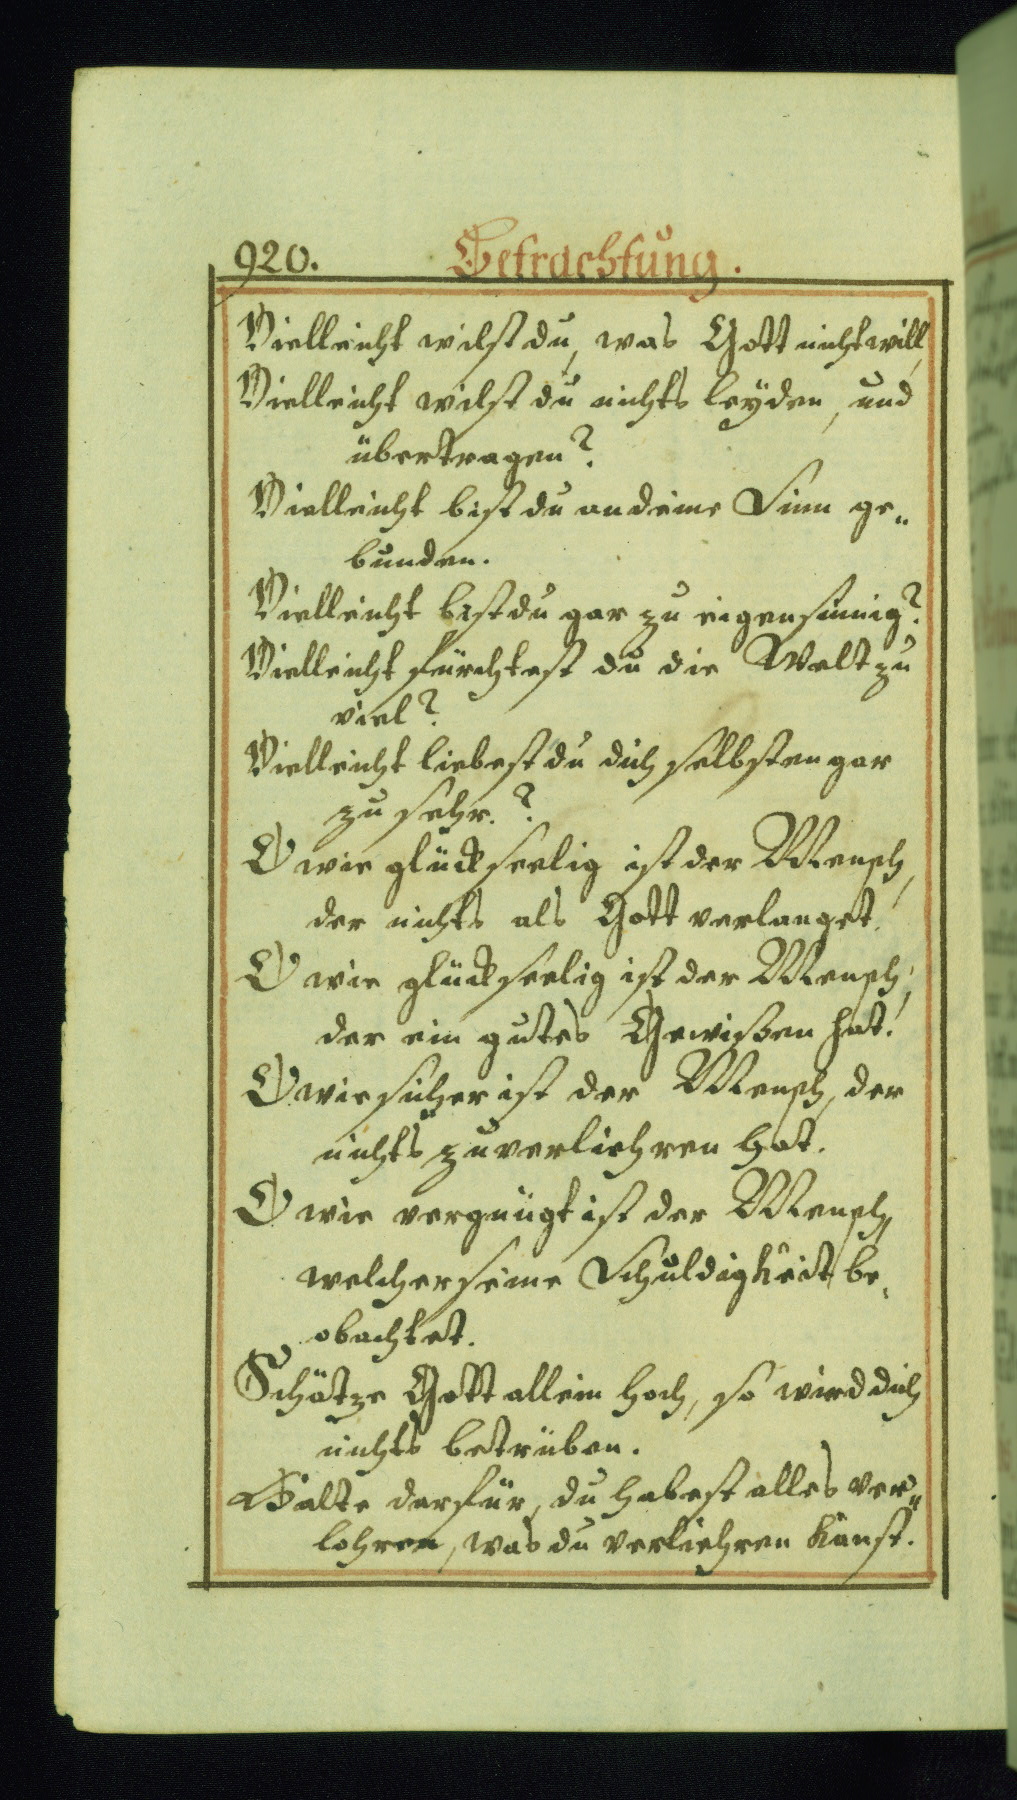 920. Betrachtung.
Vielleicht wilst du, was Gott nicht will,
Vielleicht wilst du nichts leyden, und
übertragen?
Vielleicht bist du an deine Sinn ge„
bunden.
Vielleicht bist du gar zu eigensinnig?
Vielleicht fürchtest du die Welt zu
viel?
Vielleicht liebest du dich selbsten gar
zu sehr.?
O wie glückseelig ist der Mensch,
der nichts als Gott verlanget!
O wie glückseelig ist der Mensch,
der ein gutes Gewißen hat!
O wie sicher ist der Mensch, der
nichts zu verliehren hat.
O wie vergnügt ist der Mensch,
welcher seine Schuldigkeit be„
obachtet.
Schätze Gott allein hoch, so wird dich
nichts betrüben.
Halte darfür, du habest alles ver„
lohren, was du verliehren kanst.